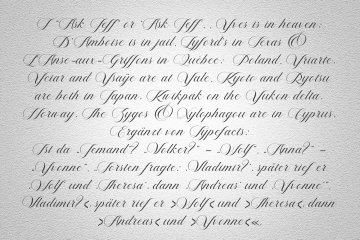 I "Ask Jeff" or 'Ask Jeff'. Yves is in heaven;
D'Amboise is in jail. Lyford's in Texas &
L'Anse-aux-Griffons in Québec; Poland. Yriarte,
Yciar and Ysaÿe are at Yale. Kyoto and Ryotsu
are both in Japan, Kwikpak on the Yukon delta,
Norway. The Zyges & Xylophagou are in Cyprus.
Ergänzt von Typefacts:
Ist da „Jemand“? „Volker?“ – „Wolf“, „Anna?“ –
„Yvonne“. „Torsten fragte: ‚Wladimir?‘, später rief er
‚Wolf‘ und ‚Theresa‘, dann ‚Andreas‘ und ‚Yvonne‘“.
‚Wladimir?‹, später rief er ›Wolf‹ und ›Theresa‹, dann
›Andreas‹ und ›Yvonne‹«.